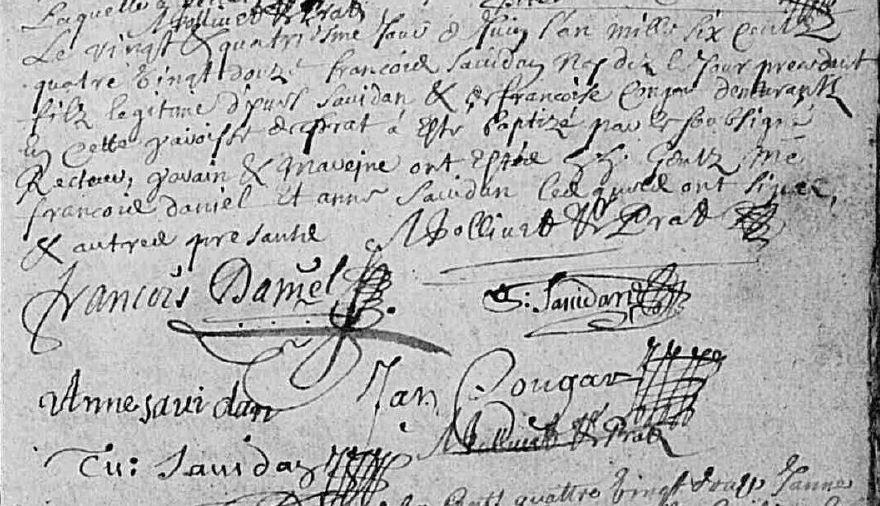 Laquelle a
Le vingt & quatriesme Jour de Juin l'an mille six centz
quatre vingt douze francois Savidan Nay dix le Jour precedant
filz legitime d'yves Savidan & de francoise demeurantz
en cette paroisse de prat à Esté baptizé par le soubsigné
Recteur, parain & maraine ont Estée Gentz Me
francois daniel Et anne Savidan lesquels ont signez,
& autres presants Mollivet Vr Prat
François Daniel
S: Savidan
Anne savidan
Jan Cougar
Mollivet Vr Prat
Savidan
quattre vingt Janne